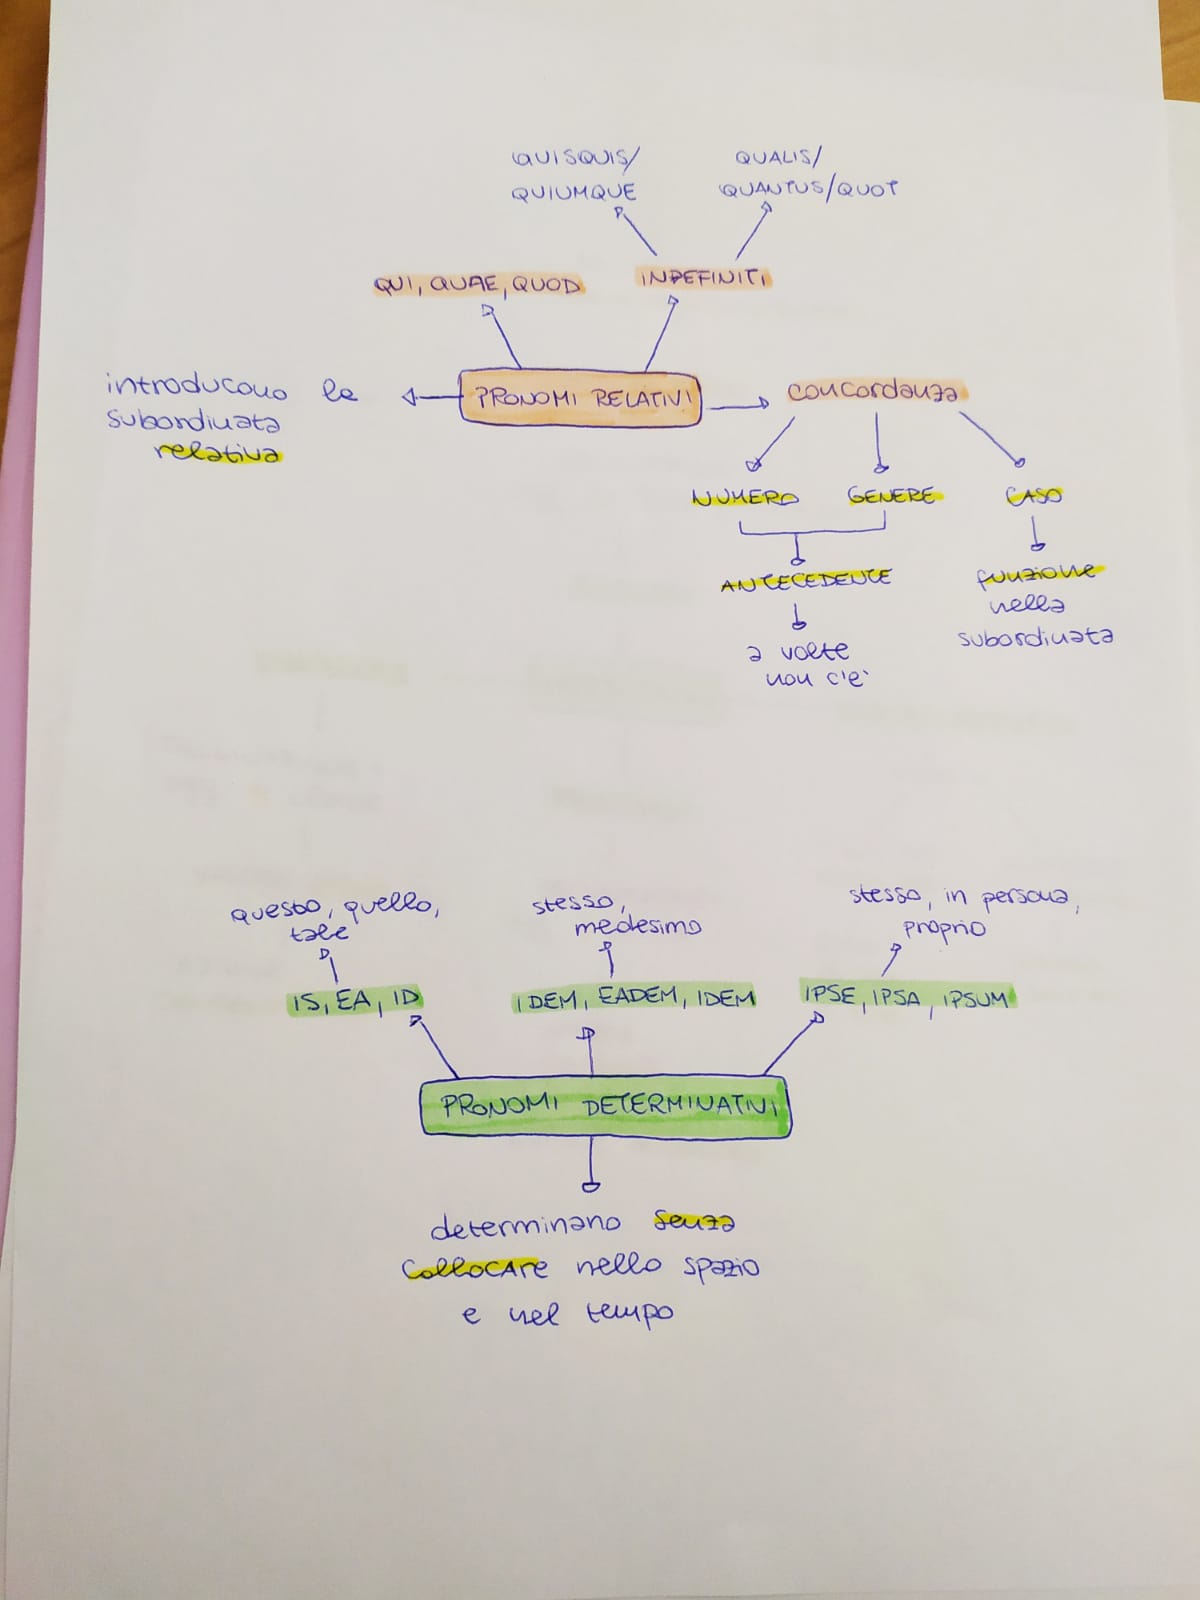 QUISQUIS/
QUIUMQUE
QUALIS/
QUANTUS/QUOT
QUI, QUAE, QUOD
INDEFINITI
introducono la
subordinata
relativa
PRONOMI RELATIVI
concordanza
NUMERO
GENERE
CASO
ANTECEDENTE
a volte
non c'è
funzione
nella
subordinata
questo, quello,
tale
stesso,
medesimo
stesso, in persona,
proprio
IS, EA, ID
IDEM, EADEM, IDEM
IPSE, IPSA, IPSUM
PRONOMI DETERMINATIVI
determinano senza
collocare nello spazio
e nel tempo